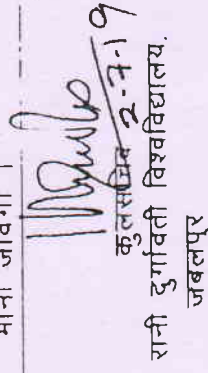 माना जावेगा ।
कुलसचिव 2-7-19
रानी दुर्गावती विश्वविद्यालय,
जबलपुर